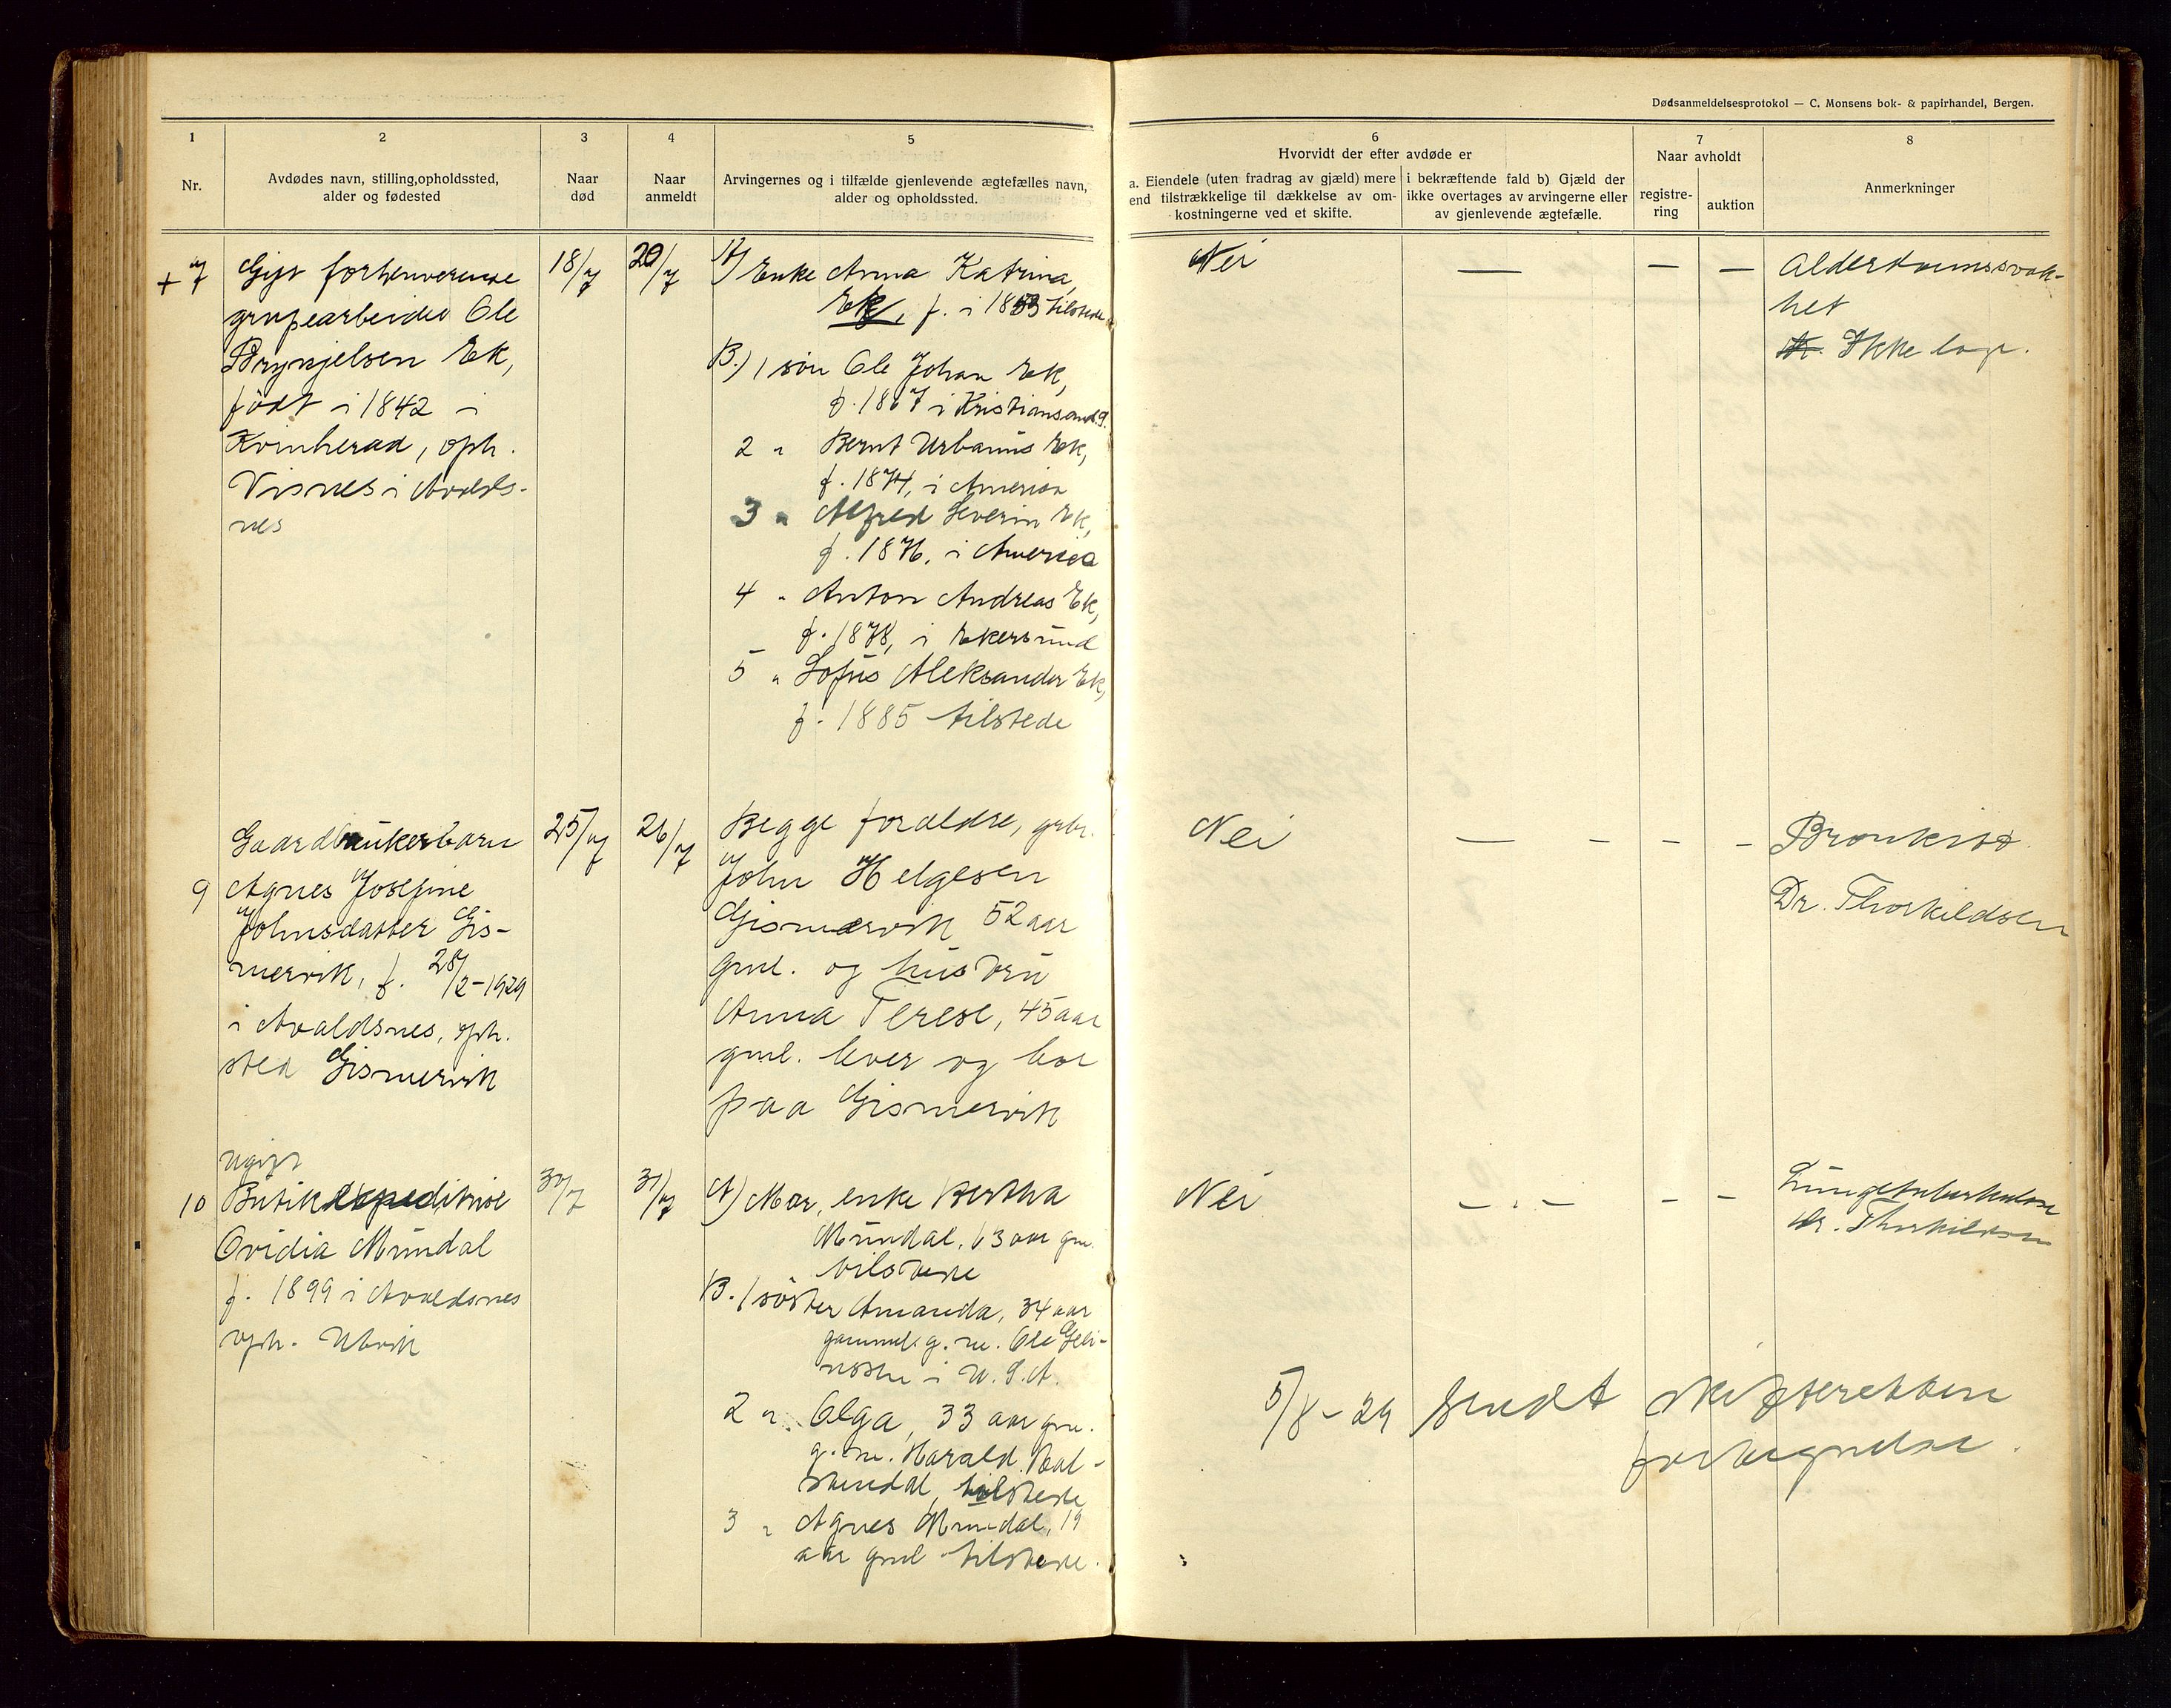 Dødsanmeldelsesprotokol — C. Monsens bok- & papirhandel, Bergen.
1
2
3
4
5
6
7
8
Nr.
Avdødes navn, stilling, opholdssted,
alder og fødested
Naar
død
Naar
anmeldt
Arvingernes og i tilfælde gjenlevende ægtefælles navn,
alder og opholdssted.
Hvorvidt der efter avdøde er
a. Eiendele (uten fradrag av gjæld) mere
end tilstrækkelige til dækkelse av om-
kostningerne ved et skifte.
i bekræftende fald b) Gjæld der
ikke overtages av arvingerne eller
av gjenlevende ægtefælle.
Naar avholdt
registre-
ring
auktion
Anmerkninger
+ 7
Gift forhenværende
grupearbeider Ole
Brynjelsen Ek,
født i 1842 i
Kvinherad, oph.
Visnes i Avalds-
nes
18/7
20/7
A) Enke Anna Katrina
Ek, f. i 1853 tilstede
B.) 1 søn Ole Johan Ek,
f. 1867 i Kristiansand S.
2 " Bernt Urbanus Ek,
f. 1874, i America
3 " Alfred Severin Ek,
f. 1876, i America
4 " Anton Andreas Ek,
f. 1878, i Ekersund
5 " Sofus Aleksander Ek,
f. 1885 tilstede
Nei
—
—
—
Alderdomssvak-
het
Ikke læge.
9
Gaardbrukerbarn
Agnes Josefine
Johnsdatter Gis-
mervik, f. 28/2-1929
i Avaldsnes, oph.
sted Gismervik
25/7
26/7
Begge forældre, grbr.
John Helgesen
Gismervik 52 aar
gml. og hustru
Anna Terese, 45 aar
gml. lever og bor
paa Gismervik
Nei
— - - -
Bronkitt
Dr. Thorkildsen
10
Ugift
Butikexpeditrise
Ovidia Mundal
f. 1899 i Avaldsnes
oph. Utvik
30/7
31/7
A) Mor, enke Bertha
Mundal, 63 aar gm.
tilstede
B. 1 søster Amanda, 34 aar
gammel g. m. Ole
i U.S.A.
2 " Olga, 33 aar gm.
g. m. Harald
tilstede
3 " Agnes Mundal, 19
aar gml tilstede.
Nei
— . — - -
Lungetuberkulose
Dr. Thorkildsen
5/8-29 Sendt skifteretten
fortegnelse.